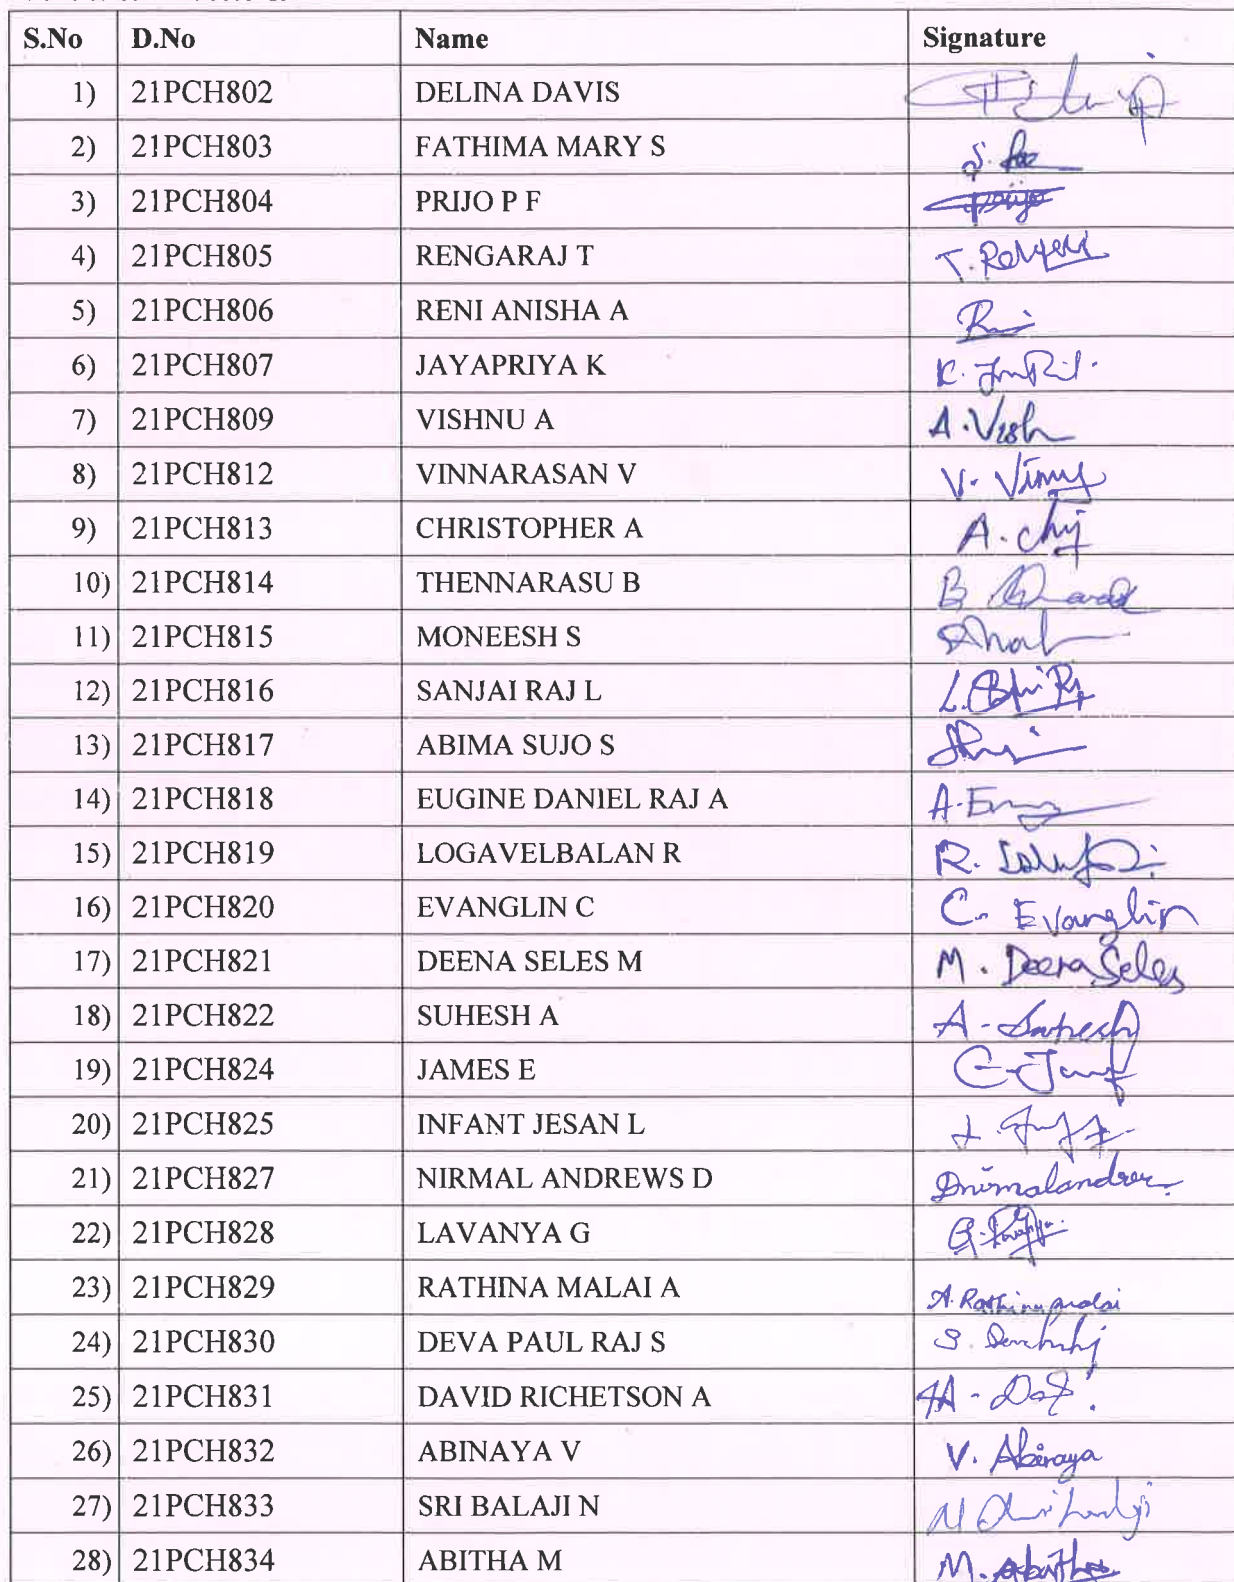 S.No D.No Name Signature
1) 21PCH802 DELINA DAVIS
2) 21PCH803 FATHIMA MARY S S.
3) 21PCH804 PRIJO P F Prijo
4) 21PCH805 RENGARAJ T T.
5) 21PCH806 RENI ANISHA A
6) 21PCH807 JAYAPRIYA K K.
7) 21PCH809 VISHNU A A. Vish
8) 21PCH812 VINNARASAN V V.
9) 21PCH813 CHRISTOPHER A A.
10) 21PCH814 THENNARASU B B
11) 21PCH815 MONEESH S
12) 21PCH816 SANJAI RAJ L L.
13) 21PCH817 ABIMA SUJO S
14) 21PCH818 EUGINE DANIEL RAJ A A.
15) 21PCH819 LOGAVELBALAN R R.
16) 21PCH820 EVANGLIN C C. Evanglin
17) 21PCH821 DEENA SELES M M. Deena Seles
18) 21PCH822 SUHESH A A - Suhesh
19) 21PCH824 JAMES E
20) 21PCH825 INFANT JESAN L
21) 21PCH827 NIRMAL ANDREWS D
22) 21PCH828 LAVANYA G G.
23) 21PCH829 RATHINA MALAI A A. Rathinamalai
24) 21PCH830 DEVA PAUL RAJ S S.
25) 21PCH831 DAVID RICHETSON A
26) 21PCH832 ABINAYA V V. Abinaya
27) 21PCH833 SRI BALAJI N N
28) 21PCH834 ABITHA M M. Abitha